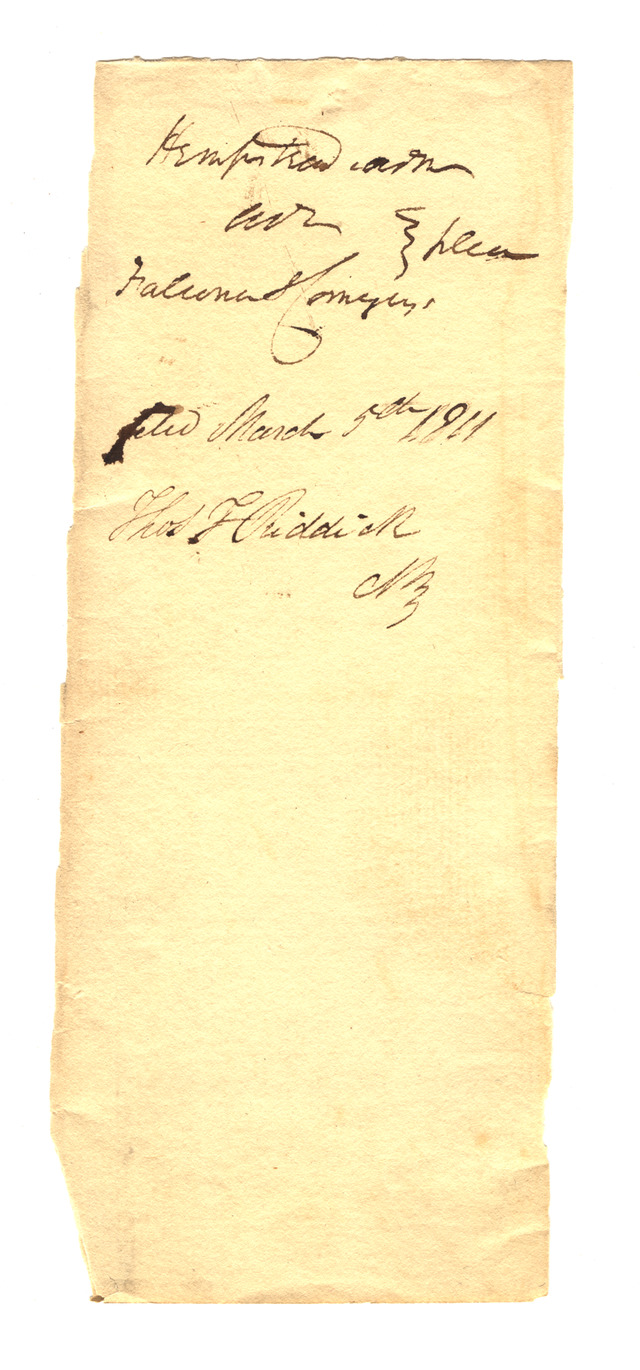 Hempstead adm
adv } plea
Falconer & Comegys.
filed March 5th 1811
Thos F Riddick